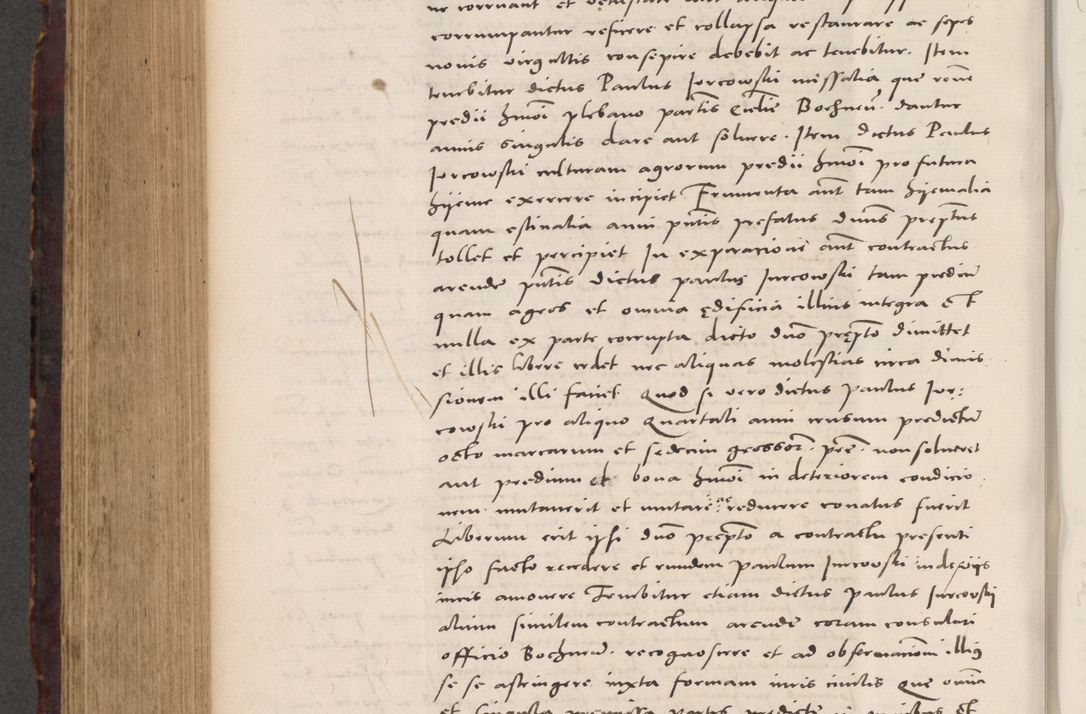 corrumpantur reficere et collapsa restaurare ac sepes
novis virgultis consepire debebit ac tenebitur. Item
tenebitur dictus Paulus Jorcowski missalia que rone
predii hmoi plebano partis Bochnen. dantur
annis singulis dare aut solvere. Item dictus Paulus
Jorcowski culturam agrorum predii hmoi pro futura
hijeme exercere incipiet Frumenta aut tam hijemalia
quam estivalia anni pntis prefatus dnus prepptus
tollet et percipiet In expiracione aut contractus
arende pntis dictus paulus Jurcowski tam predium
quam agros et omnia ędificia illius integra et
nulla ex parte corrupta dicto dno prępto dimittet
et illis libere cedet nec aliquas molestias circa dimis
sionem illi faciet Quod si vero dictus paulus Jor:
cowski pro aliquo Quartali anni censum predictum
octo marcarum et sedecim grossor. pre. non solveret
aut predium et bona hmoi in deteriorem condicio
nem mutaverit et reducere conatus fuerit
Liberum erit ipsi dno prepto a contractu presenti
ipso facto recedere et eundem paulum Jurcowski
iuris amovere Tenebitur etiam dictus paulus Jurcovski
alium similem contractum arende coram consulari
officio Bochnen. recognoscere et ad observacionem illius
se se astringere iuxta formam iuris civilis Que omnia
et singula premissa partes predicte